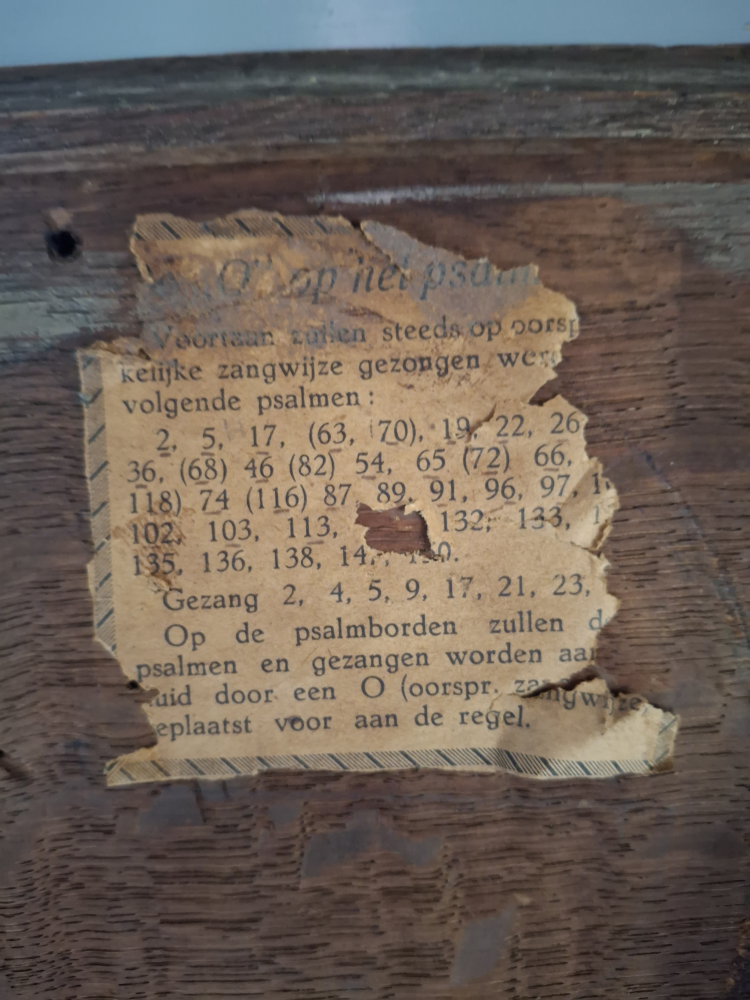 "O" op het psalm
Voortaan zullen steeds op oorsp
kelijke zangwijze gezongen wer
volgende psalmen:
2, 5, 17, (63, 70), 19, 22, 26
36, (68) 46 (82) 54, 65 (72) 66,
118) 74 (116) 87, 89, 91, 96, 97, 1
102, 103, 113, 132, 133, 1
135, 136, 138, 14
Gezang 2, 4, 5, 9, 17, 21, 23,
Op de psalmborden zullen d
psalmen en gezangen worden aan
uid door een O (oorspr. zangwijze
eplaatst voor aan de regel.